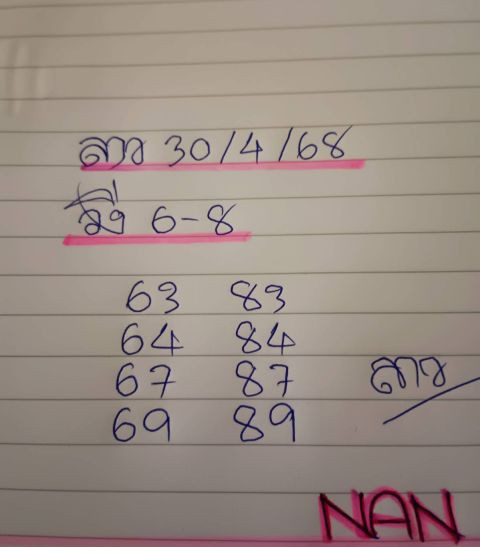 ลาว 30/4/68
วิ่ง 6-8
63 83
64 84
67 87
69 89
ลาว
NAN